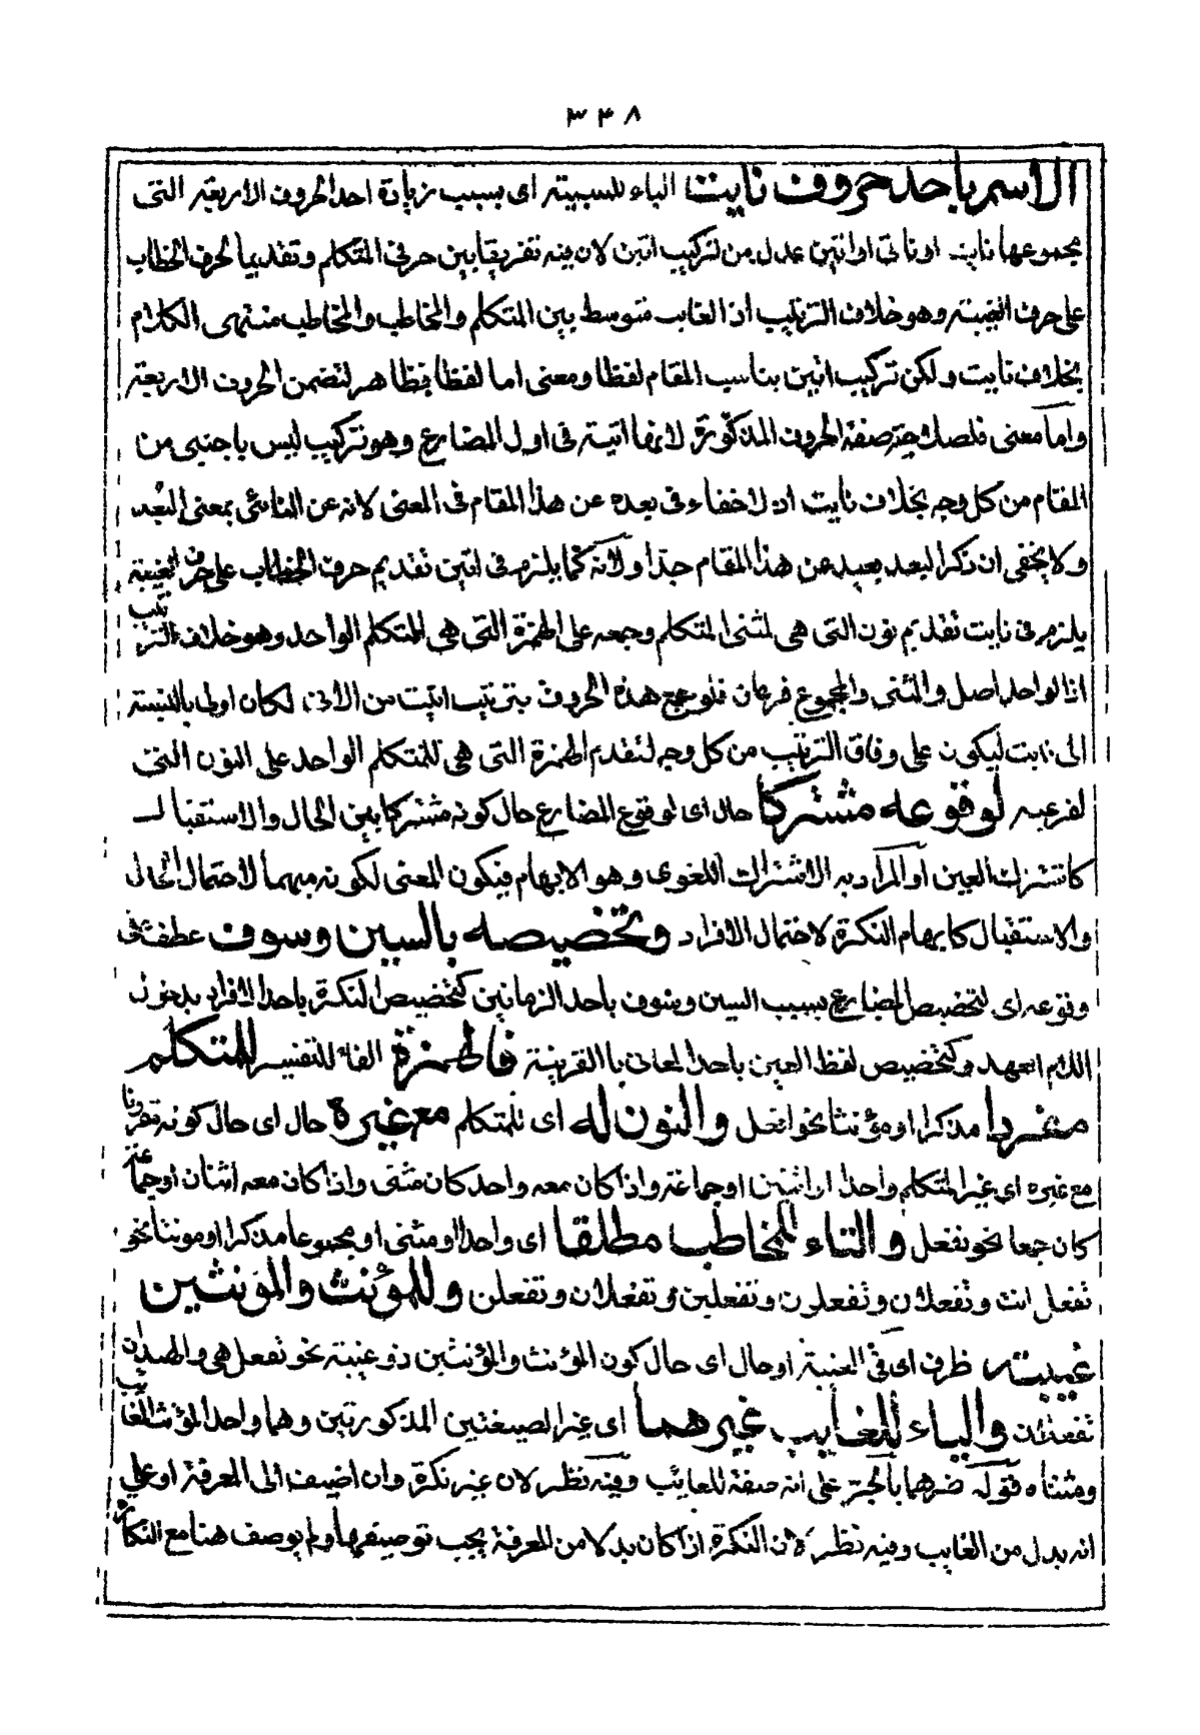 ٣٣٨
الاسم باحد حروف نايت الباء للسببية اى بسبب زيادة احد الحروف الاربعة التى
مجموعها نايت او ناتى او انتين عدل من تركيب اتين لان فيه تفريقا بين حرفى المتكلم وتقديما لحرف الخطاب
على حرف الغيبة وهو خلاف الترتيب اذ الغايب متوسط بين المتكلم والمخاطب والمخاطب منتهى الكلام
بخلاف نايت ولكن تركيب اتين يناسب المقام لفظا ومعنى اما لفظا فظاهر لتضمن الحروف الاربعة
واما معنى فلصلاحية صفة الحروف المذكورة لانها اتية فى اول المضارع وهو تركيب ليس باجنبى من
المقام من كل وجه بخلاف نايت اذ لا خفاء فى بعده عن هذا المقام فى المعنى لانه عن النائى بمعنى البعد
ولا يخفى ان ذكر البعد بعيد من هذا المقام جدا ولانه كما يلزم فى اتين تقديم حرف الخطاب على حرف الغيبة
يلزم فى نايت تقديم نون التى هى لمثنى المتكلم وجمعه على الهمزة التى هى للمتكلم الواحد وهو خلاف الترتيب
اذ الواحد اصل والمثنى والمجموع فرعان فلو جمع هذه الحروف بترتيب انيت من لكان اولى بالنسبة
الى نايت ليكون على وفاق الترتيب من كل وجه لتقديم الهمزة التى هى للمتكلم الواحد على النون التى
لفرعيه لوقوعه مشتركا حال اى لوقوع المضارع حال كونه مشتركا بين الحال والاستقبال
كاشتراك العين او المراد به الاشتراك اللغوى وهو الابهام فيكون المعنى لكونه مبهما لاحتمال الحال
والاستقبال كابهام النكرة لاحتمال الافراد وتخصيصه بالسين وسوف عطف على
وقوعه اى لتخصيص المضارع بسبب السين وسوف باحد الزمانين كتخصيص النكرة باحد الافراد بدخول
اللام العهد وكتخصيص لفظ العين باحد المعانى باالقرينة فالهمزة الفاء للتفسير للمتكلم
مفردا مذكرا او مؤنثا نحو افعل والنون له اى للمتكلم مع غيره حال اى حال كونه مقرونا
مع غيره اى غير المتكلم واحدا او اثنين او جماعة واذا كان معه واحد كان مثنى واذا كان معه اثنان او جماعة
كان جمعا نحو نفعل والتاء للمخاطب مطلقا اى واحدا او مثنى او مجموعا مذكرا او مونثا نحو
تفعل انت وتفعلان وتفعلون وتفعلين وتفعلان وتفعلن وللمؤنث والمؤنثين
غيبة ظرف اى فى الغيبة او حال اى حال كون المؤنث والمؤنثين ذو غيبة نحو تفعل هى والهندان
تفعلان والياء للغايب غيرهما اى غير الصيغتين المذكورتين وهما واحد المؤنث الغايب
ومثناه قوله غيرهما بالجر على انه صفة للغائب وفيه نظر لان غير نكرة وان اضيف الى المعرفة او على
انه بدل من الغايب وفيه نظر لان النكرة اذا كان بدلا من المعرفة يجب توصيفها ولم يوصف هنا مع النكارة